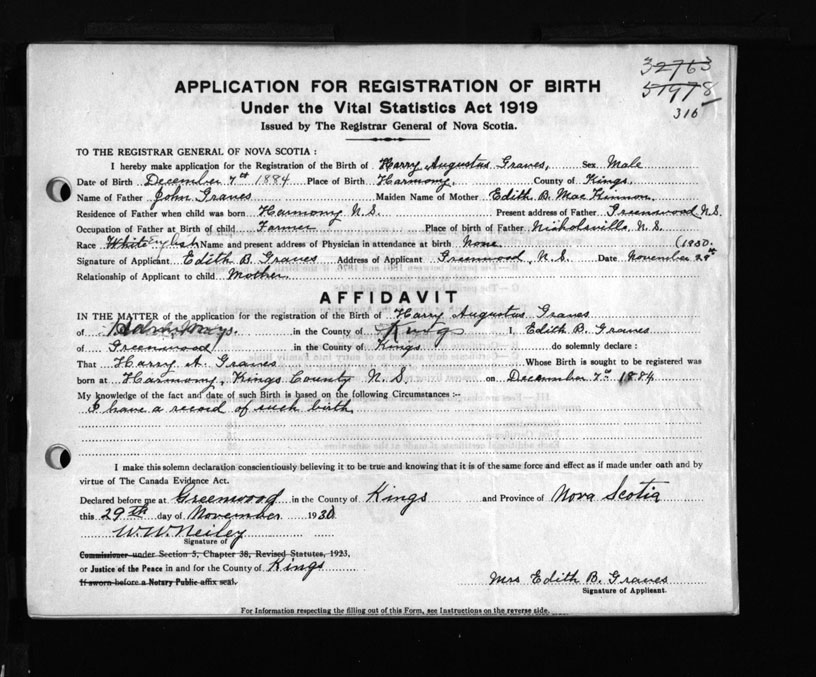 32763
51978
316
APPLICATION FOR REGISTRATION OF BIRTH
Under the Vital Statistics Act 1919
Issued by The Registrar General of Nova Scotia.
TO THE REGISTRAR GENERAL OF NOVA SCOTIA :
I hereby make application for the Registration of the Birth of Harry Augustus Graves, Sex Male
Date of Birth December 7th 1884 Place of Birth Harmony, County of Kings,
Name of Father John Graves Maiden Name of Mother Edith B. MacKinnon,
Residence of Father when child was born Harmony N.S. Present address of Father Greenwood N.S.
Occupation of Father at Birth of child Farmer Place of birth of Father Nicholsville, N.S.
Race White English Name and present address of Physician in attendance at birth None. (1930.
Signature of Applicant Edith B Graves Address of Applicant Greenwood, N.S. Date November 29th
Relationship of Applicant to child Mother
AFFIDAVIT
IN THE MATTER of the application for the registration of the Birth of Harry Augustus Graves
of in the County of Kings I, Edith B. Graves
of Greenwood in the County of Kings do solemnly declare :
That Harry A. Graves Whose Birth is sought to be registered was
born at Harmony, Kings County N.S. on December 7th 1884
My knowledge of the fact and date of such Birth is based on the following Circumstances :--
I have a record of such birth.
I make this solemn declaration conscientiously believing it to be true and knowing that it is of the same force and effect as if made under oath and by
virtue of The Canada Evidence Act.
Declared before me at Greenwood in the County of Kings and Province of Nova Scotia
this 29th day of November 1930
W.W. Neiley
Signature of
Commissioner under Section 5, Chapter 38, Revised Statutes, 1923,
or Justice of the Peace in and for the County of Kings
If sworn before a Notary Public affix seal.
Mrs Edith B. Graves
Signature of Applicant.
For Information respecting the filling out of this Form, see Instructions on the reverse side.